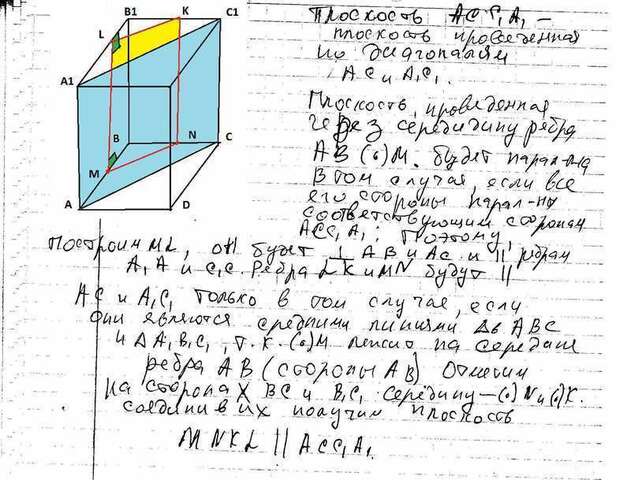 B1 K C1
L
A1
B N C
M
A D
Плоскость ACC₁A₁ –
плоскость проведенная
по диагоналям
AC и A₁C₁.
Плоскость, проведенная
через середину ребра
AB (∙)M. будет парал-на
в том случае, если все
его стороны парал-ны
соответствующим сторонам
ACC₁A₁. Поэтому,
Построим ML, он будет ⊥ AB и AC и || ребрам
A₁A и C₁C. Ребра LK и MN будут ||
AC и A₁C₁ только в том случае, если
они являются средними линиями Δв ABC
и ΔA₁B₁C₁, т.к. (∙)M лежит на середине
ребра AB (стороны AB) Отметим
на сторонах BC и B₁C₁ середину – (∙)N и (∙)K.
соединив их получим плоскость
MNKL || ACC₁A₁.